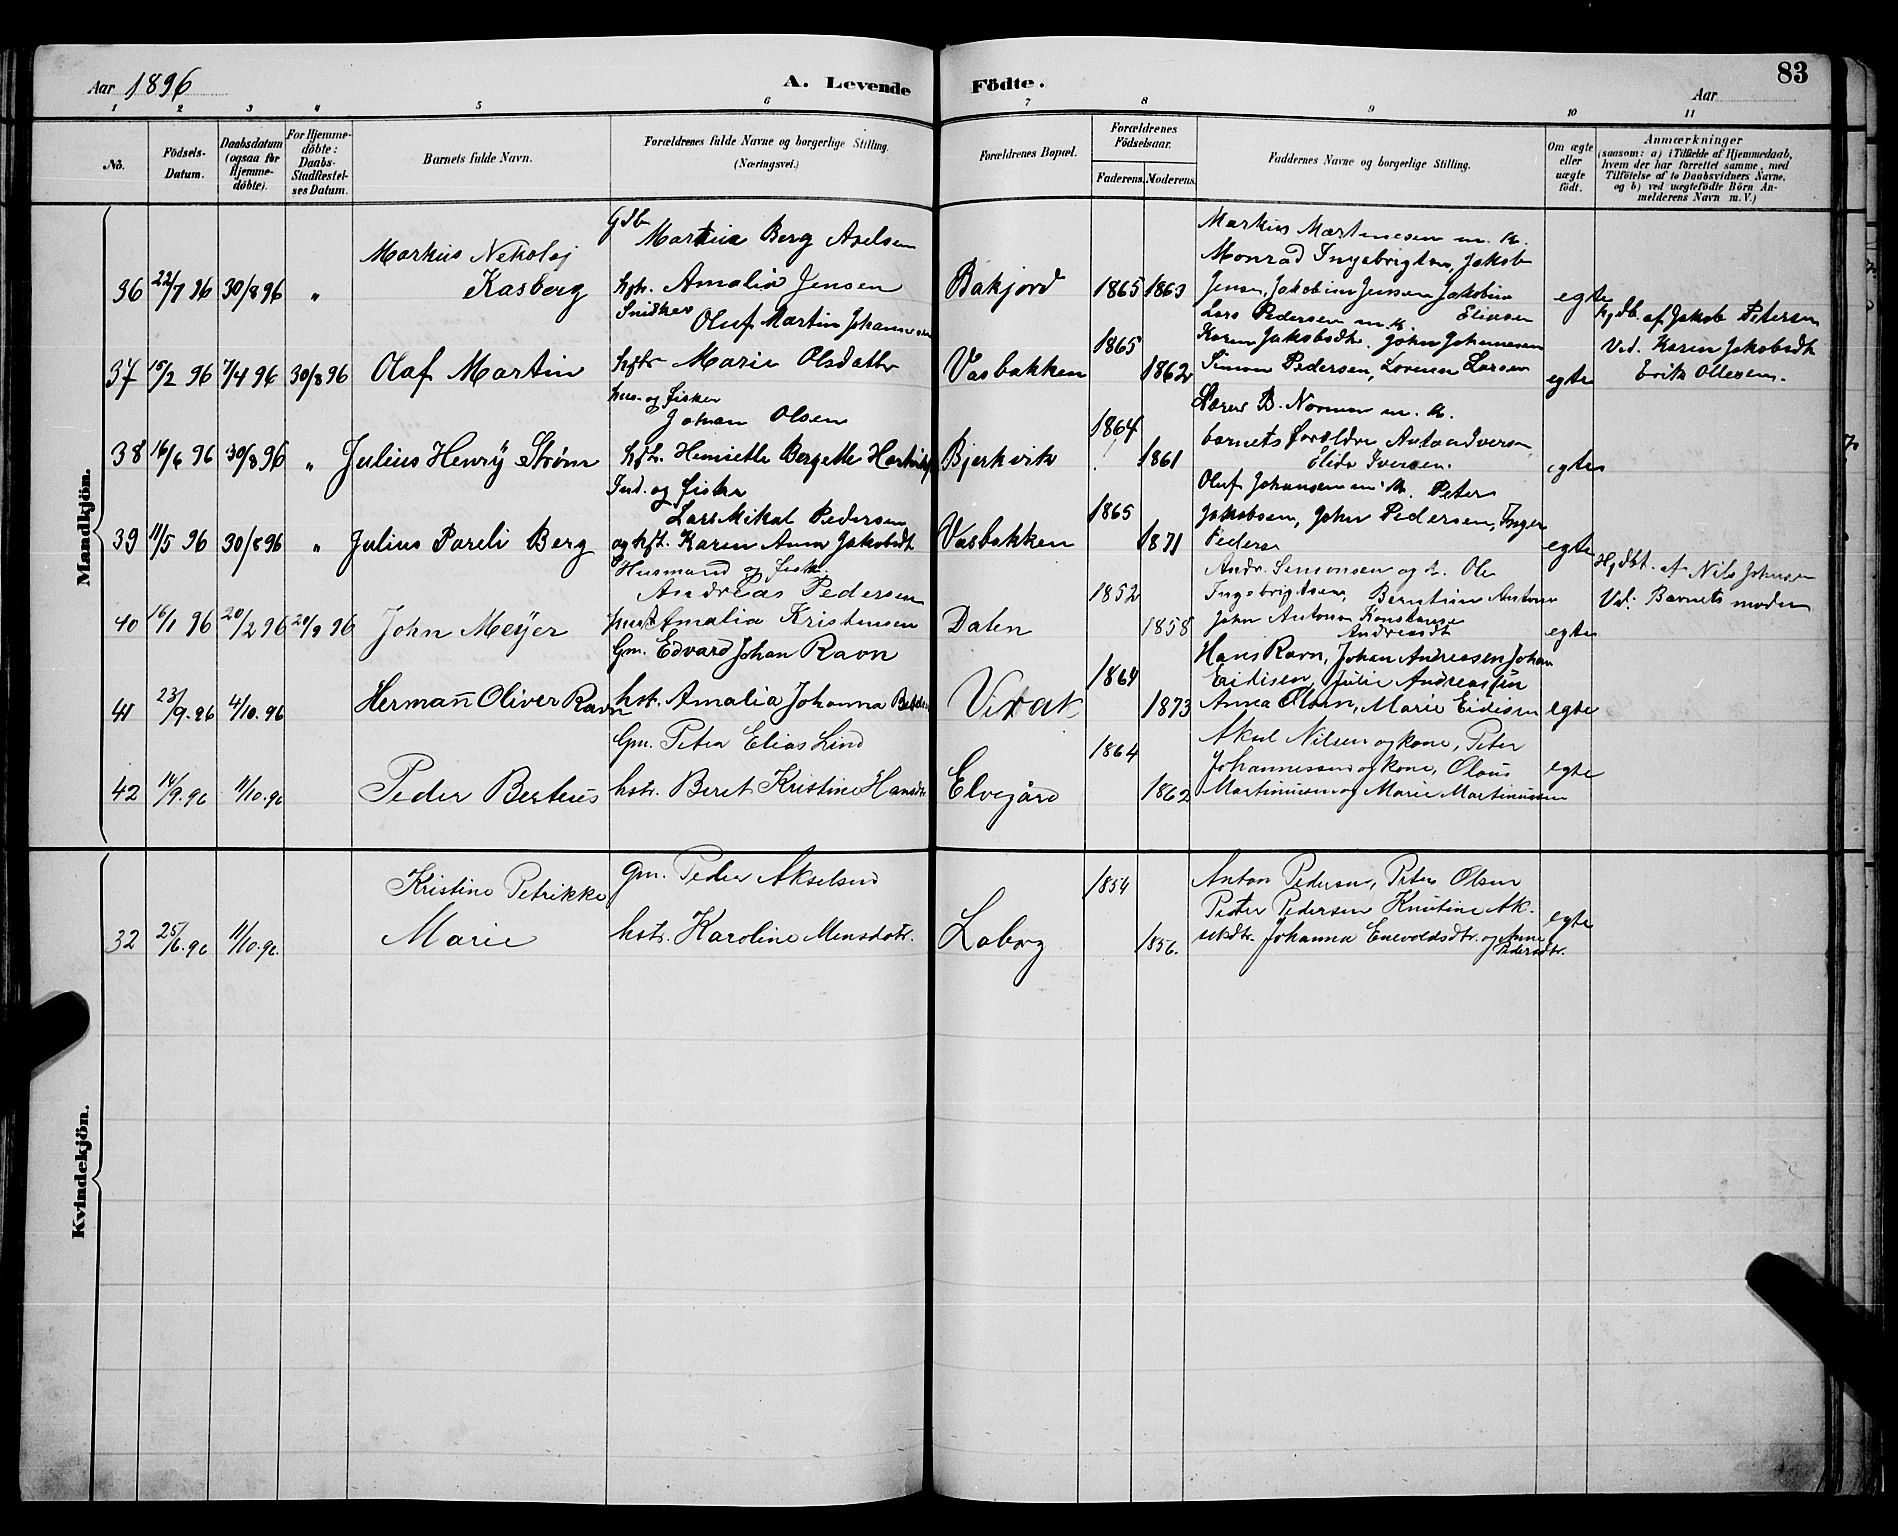 Aar 1896
A. Levende Födte.
83
Aar
1 2 3 4 5 6 7 8 9 10 11
No.
Födsels-Datum.
Daabsdatum (ogsaa for Hjemme-döbte).
For Hjemme-döbte: Daabs-Stadfæstel-ses Datum.
Barnets fulde Navn.
Forældrenes fulde Navne og borgerlige Stilling. (Næringsvei.)
Forældrenes Bopæl.
Forældrenes Födselsaar.
Faderens. Moderens.
Faddernes Navne og borgerlige Stilling.
Om ægte eller uægte födt.
Anmærkninger
(saasom: a) i Tilfælde af Hjemmedaab,
hvem der har forrettet samme, med
Tilföielse af to Daabsvidners Navne,
og b) ved uægtefödte Börn An-
melderens Navn m. V.)
Mandkjön.
36 22/7 96 30/8 96 "
Markus Nekolaj
Kasberg
Gdb
Martin Berg Axelsen
Kfh. Amalia Jensen
Bakjord 1865 1863
Markus Martinesen m. k.
Monrad Ingebrigtsen, Jakob
Jensen, Jakobine Jensen Jakobine
Eliasen
egte
37 15/2 96 7/4 96 30/8 96
Olaf Martin
Snidker
Oluf Martin Johannesen
Marie Olsdatter
Vasbakken 1865 1862
Lars Pedersen m. k.
Karen Jakobsdt. John Johannesen
Simon Pedersen, Lorense Larsen
egte
Hjdb. af Jakob Petersen
Vid. Karen Jakobsdt
Erik Ollesen.
38 16/6 96 30/8 96 "
Julius Henrÿ Strøm
hus. og fisker
Johan Olsen
Kfh. Henriette Bergette
Bjerkvik 1864 1861
B. Norman m. k.
barnets forældre
Elida Iversen.
egte
39 11/5 96 30/8 96 "
Julius Pareli Berg
Ind. og fisker
Lars Mikal Pedersen
og kfh. Karen Anna Jakobsdt
Vasbakken 1865 1871
Oluf Johansen m. k. Peter
Jakobsen, John Pedersen, Inger
Peders
egte
40 16/1 96 20/2 96 20/9 96
John Meÿer
Husmand og fisk.
Andreas Pedersen
Amalia Kristensen
Dalen 1852 1858
Andr. Simonsen og k. Ole
Ingebrigtsen, Berntine Antons
John Antonsen Konstanse
Andreasdt
egte
Hjdbt. af Nils Johnsen
Vid. Barnets moder
41 23/9. 96 4/10. 96
Hermann Oliver Ravn
Gm. Edvard Johan Ravn
hst. Amalia Johanna
Virak 1864 1873
Hans Ravn, Johan Andreasen Johan
Eidisen, Julie Andreassen
Anna Olsen, Marie Eidisen
egte
42 14/9. 96 11/10. 96
Peder Berteus
Gm. Peter Elias Lind
hstr. Beret Kristine Hansdtr
Elvegård 1864 1862
Aksel Nilsen og kone, Peter
Johannessen og kone, Olaus
Martinusen og Marie Martinussen
egte
Kvindekjön.
32 25/6. 96 11/10. 96.
Kristine Petrikke
Marie
Gm. Peder Akselsen
hstr. Karoline Monsdatr.
Laberg 1854 1856.
Anton Pedersen, Peter Olsen
Peter Pedersen Knutine Ak-
selsdtr. Johanna Enevoldsdtr. og Anne
Pedersdtr.
egte